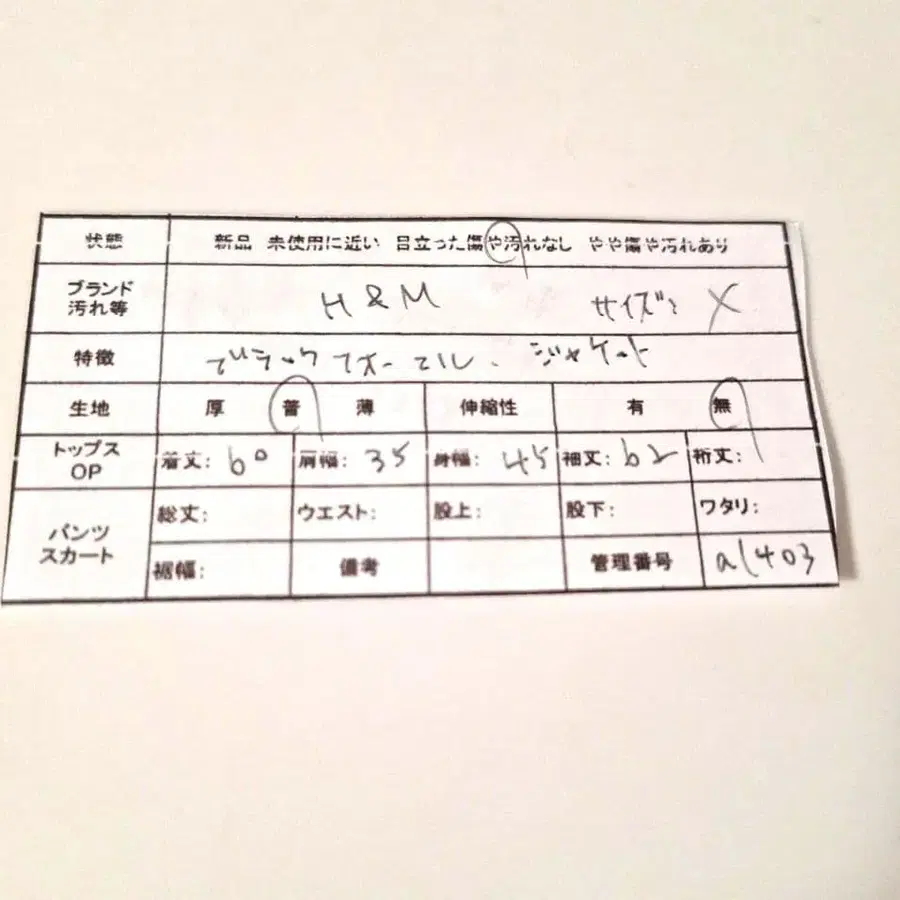 状態 新品 未使用に近い 目立った傷や汚れなし やや傷や汚れあり
ブランド
汚れ等 H&M サイズ: X
特徴 ブラックフォーマル、ジャケット
生地 厚 普 薄 伸縮性 有 無
トップス
OP 着丈: 60 肩幅: 35 身幅: 45 袖丈: 62 裄丈:
パンツ
スカート 総丈: ウエスト: 股上: 股下: ワタリ:
裾幅: 備考 管理番号 al403